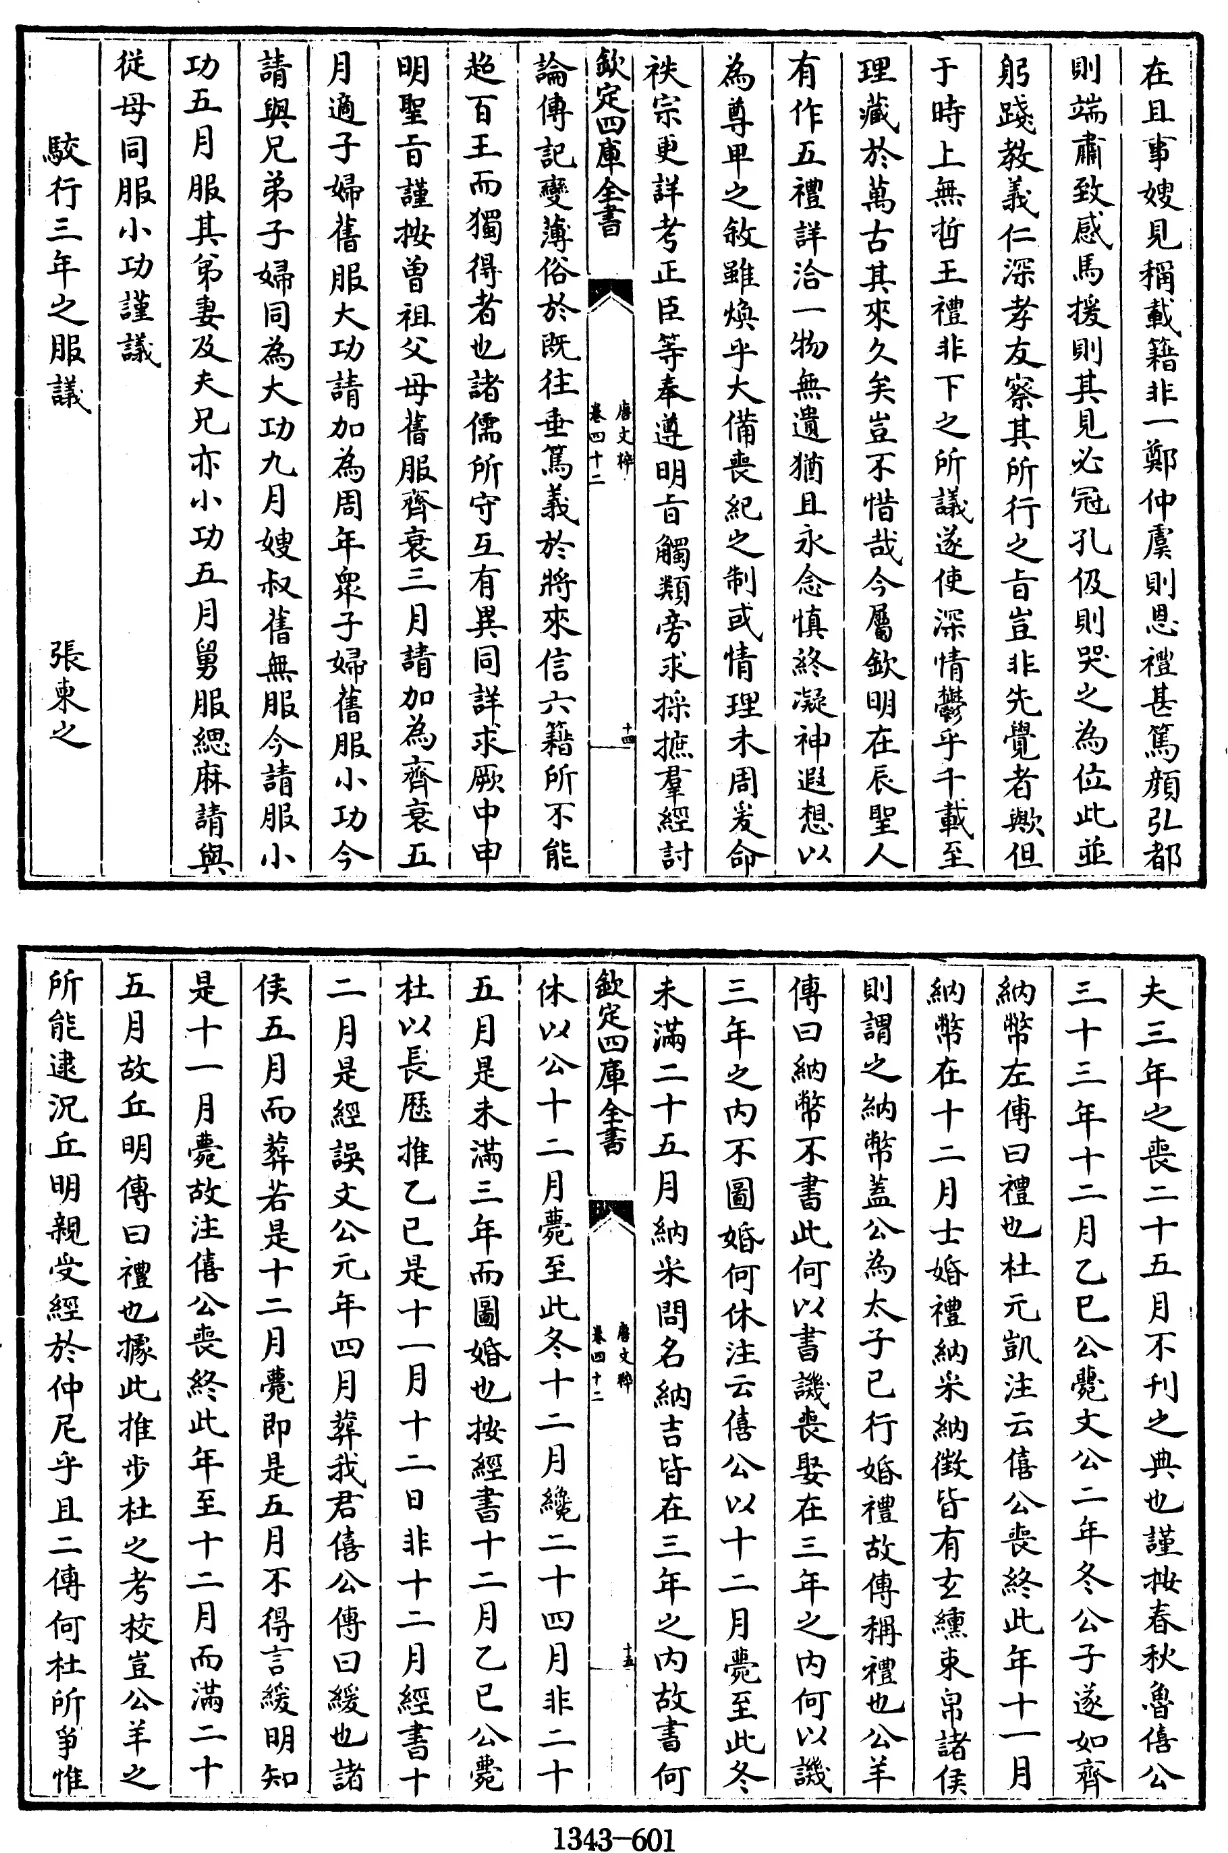 在且事嫂見稱載籍非一鄭仲虞則恩禮甚篤顏弘都
則端肅致感馬援則其見必冠孔伋則哭之為位此並
躬踐教義仁深孝友察其所行之㫖豈非先覺者歟但
于時上無哲王禮非下之所議遂使深情鬱乎千載至
理藏於萬古其來久矣豈不惜哉今屬欽明在辰聖人
有作五禮詳洽一物無遺猶且永念慎終凝神遐想以
為尊卑之敘雖煥乎大備喪紀之制或情理未周爰命
秩宗更詳考正臣等奉遵明㫖觸類旁求採摭羣經討
欽定四庫全書
唐文粹
卷四十二
十四
論傳記變薄俗於既往垂篤義於將來信六籍所不能
超百王而獨得者也諸儒所守互有異同詳求厥中申
明聖㫖謹按曾祖父母舊服齊衰三月請加為齊衰五
月適子婦舊服大功請加為周年衆子婦舊服小功今
請與兄弟子婦同為大功九月嫂叔舊無服今請服小
功五月服其弟妻及夫兄亦小功五月舅服緦麻請與
從母同服小功謹議
駮行三年之服議 張柬之
夫三年之喪二十五月不刊之典也謹按春秋魯僖公
三十三年十二月乙巳公薨文公二年冬公子遂如齊
納幣左傳曰禮也杜元凱注云僖公喪終此年十一月
納幣在十二月士婚禮納采納徵皆有玄纁束帛諸侯
則謂之納幣蓋公為太子已行婚禮故傳稱禮也公羊
傳曰納幣不書此何以書譏喪娶在三年之內何以譏
三年之內不圖婚何休注云僖公以十二月薨至此冬
未滿二十五月納采問名納吉皆在三年之內故書何
欽定四庫全書
唐文粹
卷四十二
十五
休以公十二月薨至此冬十二月纔二十四月非二十
五月是未滿三年而圖婚也按經書十二月乙巳公薨
杜以長歷推乙巳是十一月十二日非十二月經書十
二月是經誤文公元年四月葬我君僖公傳曰緩也諸
侯五月而葬若是十二月薨即是五月不得言緩明知
是十一月薨故注僖公喪終此年至十二月而滿二十
五月故丘明傳曰禮也據此推步杜之考校豈公羊之
所能逮況丘明親受經於仲尼乎且二傳何杜所爭惟
1343-601